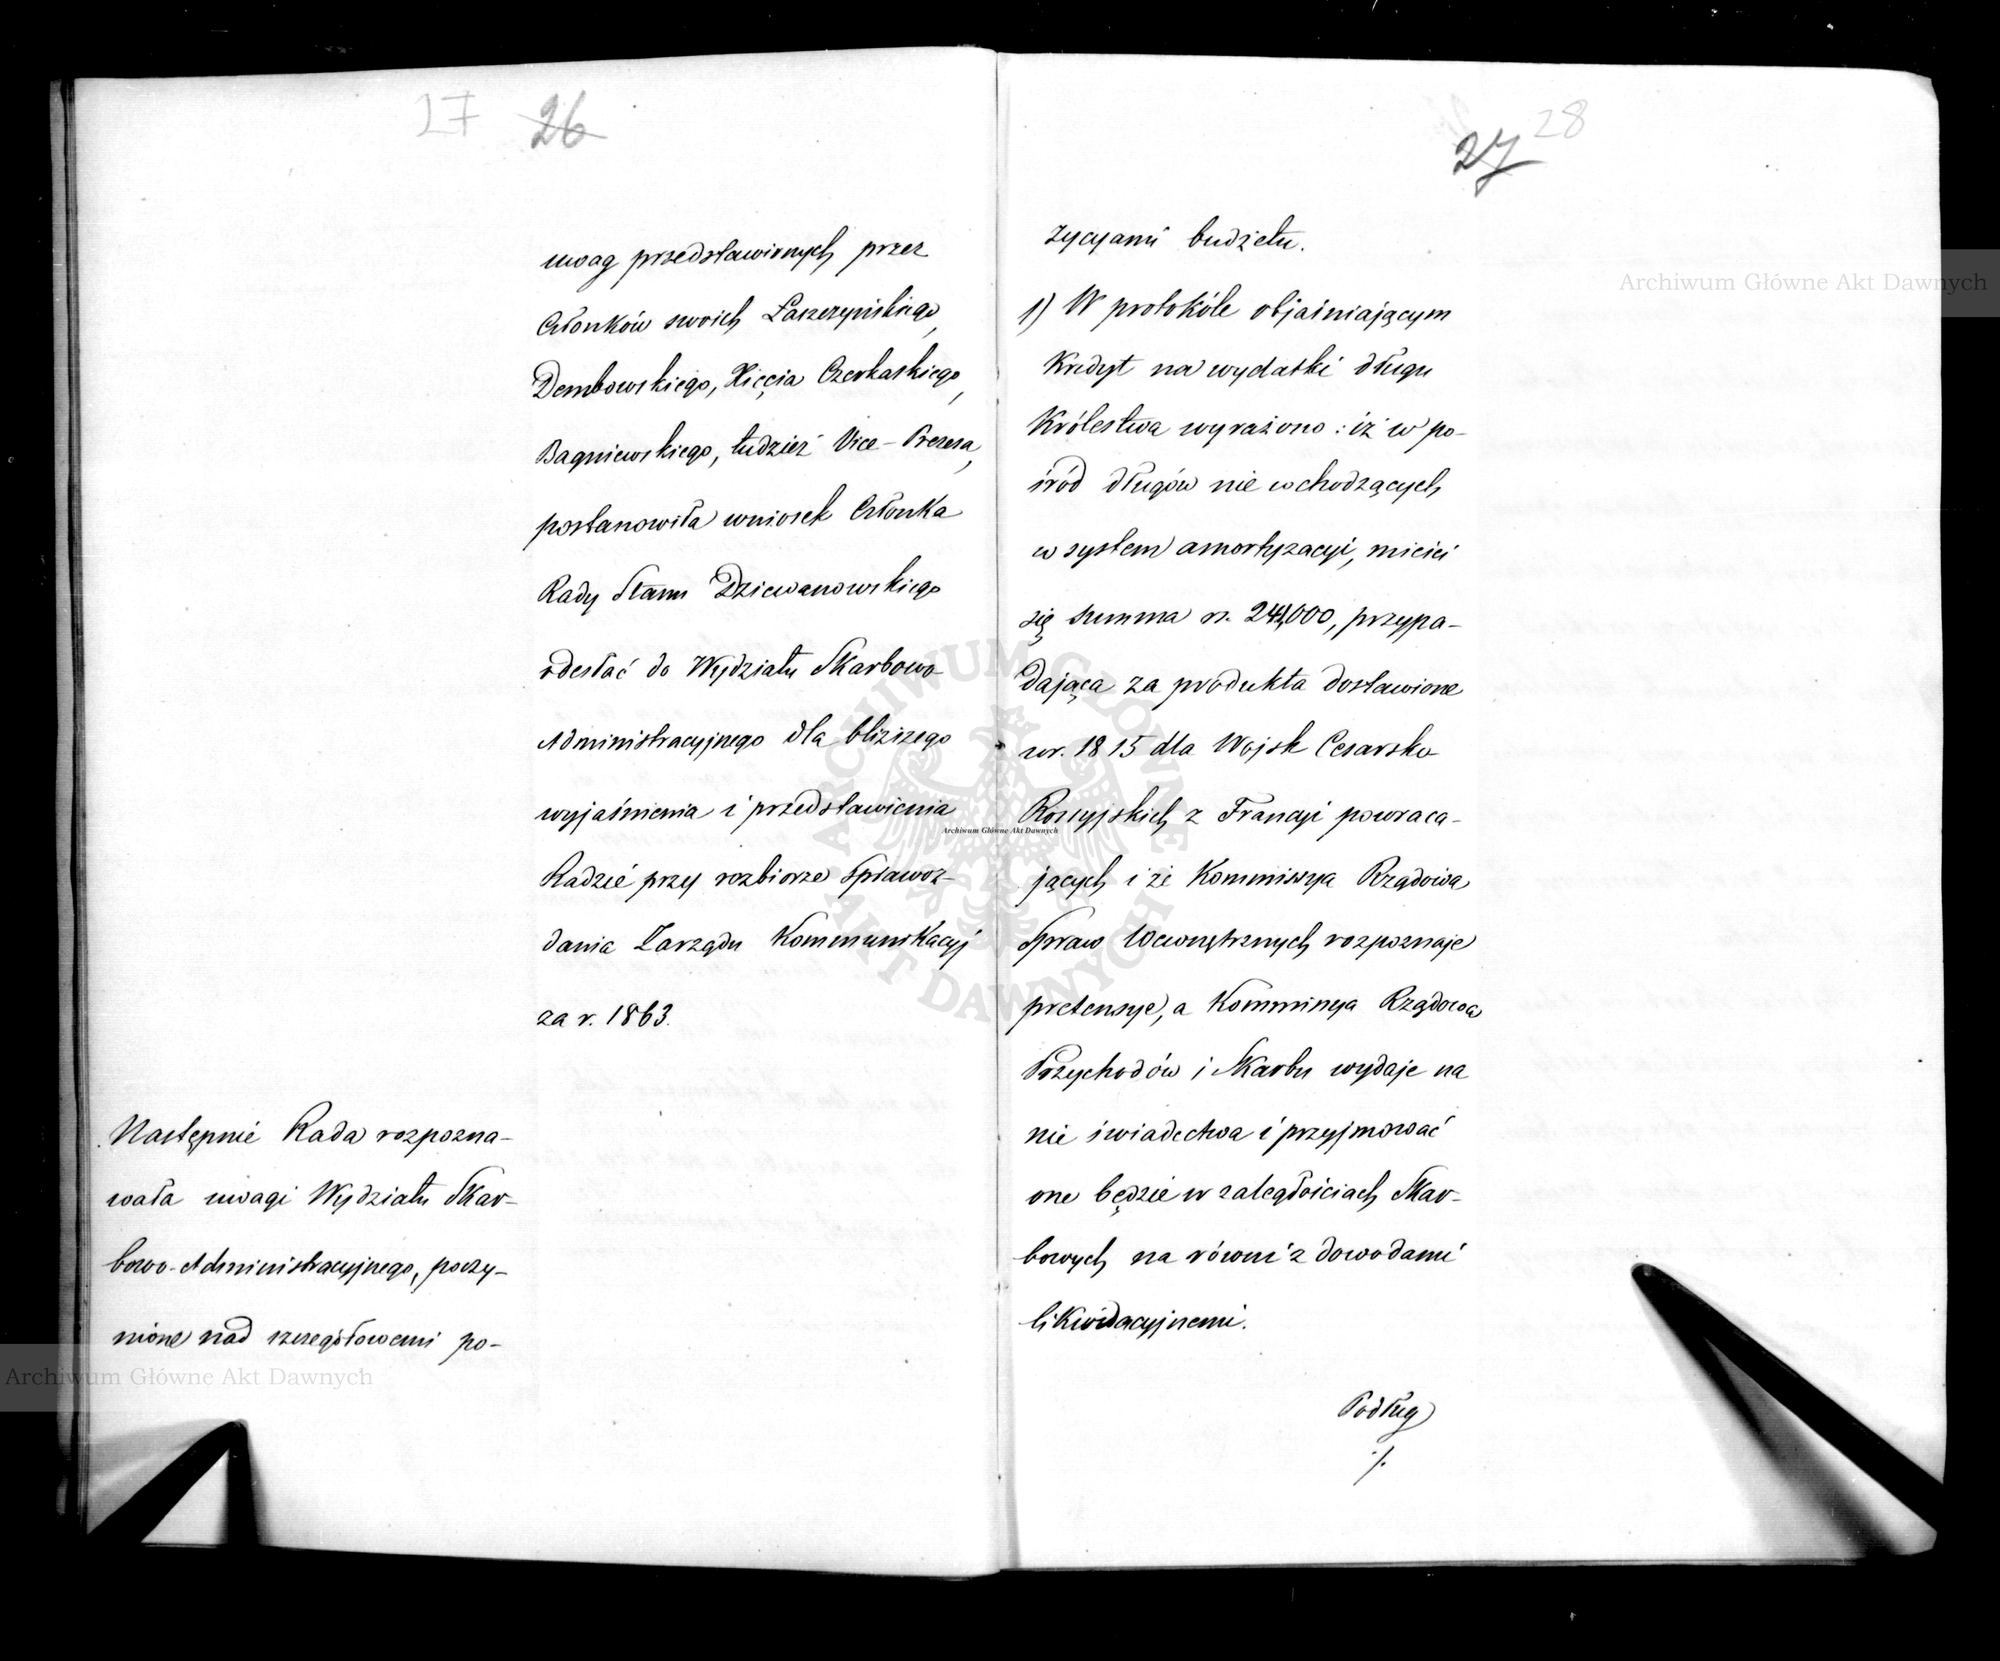 27 26
uwag przedstawionych przez
Członków swoich Łaszczyńskiego,
Dembowskiego, Xięcia Czerkaskiego,
Bagniewskiego, tudzież Vice-Prezesa,
postanowiła wniosek Członka
Rady Stanu Dziewanowskiego
odesłać do Wydziału Skarbowo
Administracyjnego dla bliższego
wyjaśnienia i przedstawienia
Radzie przy rozbiorze Sprawoz-
dania Zarządu Kommunikacyj
za r. 1863.
Następnie Rada rozpozna-
wała uwagi Wydziału Skar-
bowo-Administracyjnego, poczy-
nione nad szczegółowemi po-
27 28
zycyami budżetu.
1) W protokóle objaśniającym
Kredyt na wydatki długu
Królestwa wyrażono: iż w po-
śród długów nie wchodzących
w system amortyzacyi, mieści
się summa rs. 000, przypa-
dająca za produkta dostawione
w r. 1815 dla Wojsk Cesarsko
Rossyjskich z Francyi powraca-
jących i że Kommissya Rządowa
Spraw Wewnętrznych rozpoznaje
pretensye, a Kommissya Rządowa
Przychodów i Skarbu wydaje na
nie świadectwa i przyjmować
one będzie w zaległościach Skar-
bowych na równi z dowodami
likwidacyjnemi.
Podług
./.
Archiwum Główne Akt Dawnych
ARCHIWUM GŁÓWNE AKT DAWNYCH
Archiwum Główne Akt Dawnych
Archiwum Główne Akt Dawnych